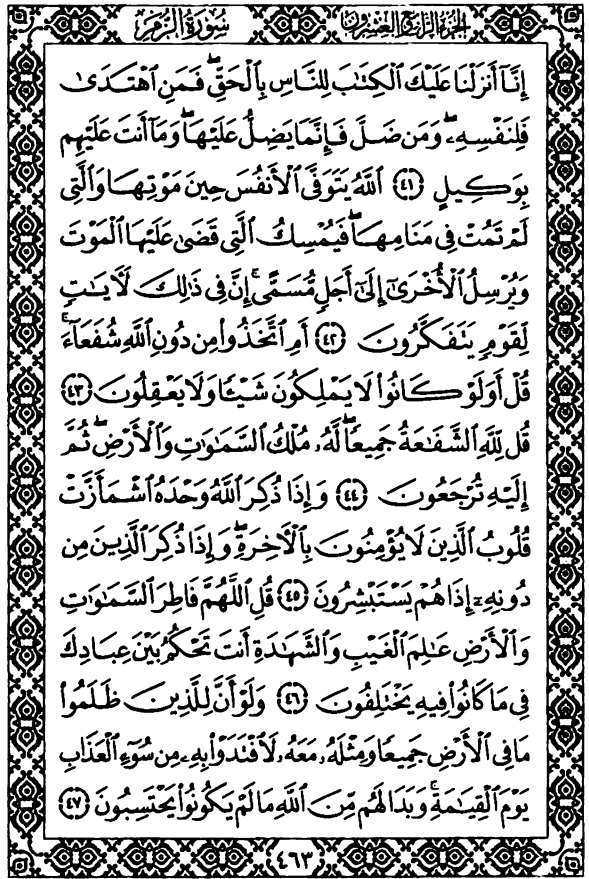 الجزء الرابع والعشرون سورة الزمر
إِنَّآ أَنزَلْنَا عَلَيْكَ ٱلْكِتَٰبَ لِلنَّاسِ بِٱلْحَقِّۖ فَمَنِ ٱهْتَدَىٰ
فَلِنَفْسِهِۦۖ وَمَن ضَلَّ فَإِنَّمَا يَضِلُّ عَلَيْهَاۖ وَمَآ أَنتَ عَلَيْهِم
بِوَكِيلٍ ٤١ ٱللَّهُ يَتَوَفَّى ٱلْأَنفُسَ حِينَ مَوْتِهَا وَٱلَّتِى
لَمْ تَمُتْ فِى مَنَامِهَاۖ فَيُمْسِكُ ٱلَّتِى قَضَىٰ عَلَيْهَا ٱلْمَوْتَ
وَيُرْسِلُ ٱلْأُخْرَىٰٓ إِلَىٰٓ أَجَلٍ مُّسَمًّىۚ إِنَّ فِى ذَٰلِكَ لَءَايَٰتٍ
لِّقَوْمٍ يَتَفَكَّرُونَ ٤٢ أَمِ ٱتَّخَذُوا۟ مِن دُونِ ٱللَّهِ شُفَعَآءَۚ
قُلْ أَوَلَوْ كَانُوا۟ لَا يَمْلِكُونَ شَيْـًٔا وَلَا يَعْقِلُونَ ٤٣
قُل لِّلَّهِ ٱلشَّفَٰعَةُ جَمِيعًاۖ لَّهُۥ مُلْكُ ٱلسَّمَٰوَٰتِ وَٱلْأَرْضِۖ ثُمَّ
إِلَيْهِ تُرْجَعُونَ ٤٤ وَإِذَا ذُكِرَ ٱللَّهُ وَحْدَهُ ٱشْمَأَزَّتْ
قُلُوبُ ٱلَّذِينَ لَا يُؤْمِنُونَ بِٱلْءَاخِرَةِۖ وَإِذَا ذُكِرَ ٱلَّذِينَ مِن
دُونِهِۦٓ إِذَا هُمْ يَسْتَبْشِرُونَ ٤٥ قُلِ ٱللَّهُمَّ فَاطِرَ ٱلسَّمَٰوَٰتِ
وَٱلْأَرْضِ عَٰلِمَ ٱلْغَيْبِ وَٱلشَّهَٰدَةِ أَنتَ تَحْكُمُ بَيْنَ عِبَادِكَ
فِى مَا كَانُوا۟ فِيهِ يَخْتَلِفُونَ ٤٦ وَلَوْ أَنَّ لِلَّذِينَ ظَلَمُوا۟
مَا فِى ٱلْأَرْضِ جَمِيعًا وَمِثْلَهُۥ مَعَهُۥ لَٱفْتَدَوْا۟ بِهِۦ مِن سُوٓءِ ٱلْعَذَابِ
يَوْمَ ٱلْقِيَٰمَةِۚ وَبَدَا لَهُم مِّنَ ٱللَّهِ مَا لَمْ يَكُونُوا۟ يَحْتَسِبُونَ ٤٧
٤٦٣